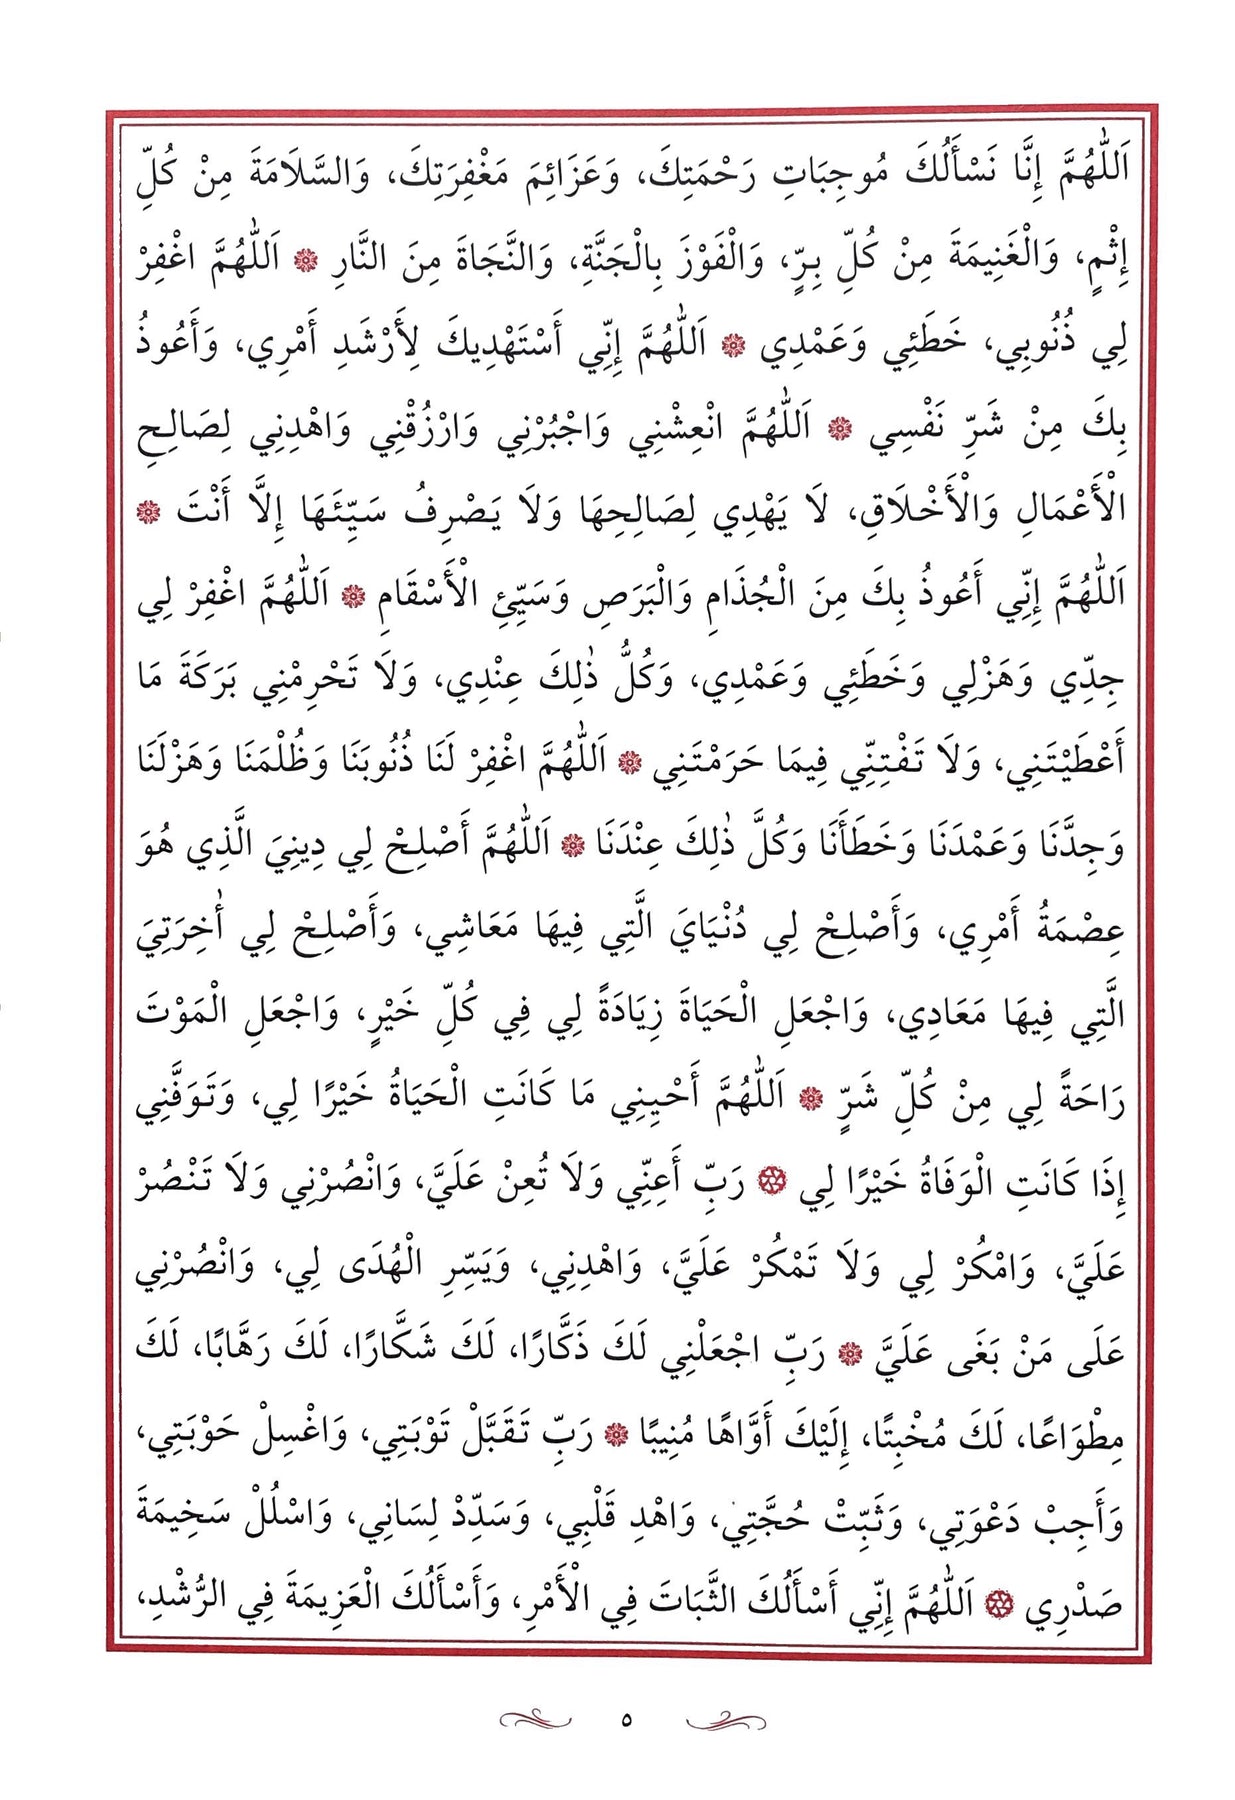 اَللّٰهُمَّ إِنَّا نَسْأَلُكَ مُوجِبَاتِ رَحْمَتِكَ، وَعَزَائِمَ مَغْفِرَتِكَ، وَالسَّلَامَةَ مِنْ كُلِّ
إِثْمٍ، وَالْغَنِيمَةَ مِنْ كُلِّ بِرٍّ، وَالْفَوْزَ بِالْجَنَّةِ، وَالنَّجَاةَ مِنَ النَّارِ ❁ اَللّٰهُمَّ اغْفِرْ
لِي ذُنُوبِي، خَطَئِي وَعَمْدِي ❁ اَللّٰهُمَّ إِنِّي أَسْتَهْدِيكَ لِأَرْشَدِ أَمْرِي، وَأَعُوذُ
بِكَ مِنْ شَرِّ نَفْسِي ❁ اَللّٰهُمَّ انْعِشْنِي وَاجْبُرْنِي وَارْزُقْنِي وَاهْدِنِي لِصَالِحِ
الْأَعْمَالِ وَالْأَخْلَاقِ، لَا يَهْدِي لِصَالِحِهَا وَلَا يَصْرِفُ سَيِّئَهَا إِلَّا أَنْتَ ❁
اَللّٰهُمَّ إِنِّي أَعُوذُ بِكَ مِنَ الْجُذَامِ وَالْبَرَصِ وَسَيِّئِ الْأَسْقَامِ ❁ اَللّٰهُمَّ اغْفِرْ لِي
جِدِّي وَهَزْلِي وَخَطَئِي وَعَمْدِي، وَكُلُّ ذٰلِكَ عِنْدِي، وَلَا تَحْرِمْنِي بَرَكَةَ مَا
أَعْطَيْتَنِي، وَلَا تَفْتِنِّي فِيمَا حَرَمْتَنِي ❁ اَللّٰهُمَّ اغْفِرْ لَنَا ذُنُوبَنَا وَظُلْمَنَا وَهَزْلَنَا
وَجِدَّنَا وَعَمْدَنَا وَخَطَأَنَا وَكُلَّ ذٰلِكَ عِنْدَنَا ❁ اَللّٰهُمَّ أَصْلِحْ لِي دِينِيَ الَّذِي هُوَ
عِصْمَةُ أَمْرِي، وَأَصْلِحْ لِي دُنْيَايَ الَّتِي فِيهَا مَعَاشِي، وَأَصْلِحْ لِي أٰخِرَتِيَ
الَّتِي فِيهَا مَعَادِي، وَاجْعَلِ الْحَيَاةَ زِيَادَةً لِي فِي كُلِّ خَيْرٍ، وَاجْعَلِ الْمَوْتَ
رَاحَةً لِي مِنْ كُلِّ شَرٍّ ❁ اَللّٰهُمَّ أَحْيِنِي مَا كَانَتِ الْحَيَاةُ خَيْرًا لِي، وَتَوَفَّنِي
إِذَا كَانَتِ الْوَفَاةُ خَيْرًا لِي ❁ رَبِّ أَعِنِّي وَلَا تُعِنْ عَلَيَّ، وَانْصُرْنِي وَلَا تَنْصُرْ
عَلَيَّ، وَامْكُرْ لِي وَلَا تَمْكُرْ عَلَيَّ، وَاهْدِنِي، وَيَسِّرِ الْهُدَى لِي، وَانْصُرْنِي
عَلَى مَنْ بَغَى عَلَيَّ ❁ رَبِّ اجْعَلْنِي لَكَ ذَكَّارًا، لَكَ شَكَّارًا، لَكَ رَهَّابًا، لَكَ
مِطْوَاعًا، لَكَ مُخْبِتًا، إِلَيْكَ أَوَّاهًا مُنِيبًا ❁ رَبِّ تَقَبَّلْ تَوْبَتِي، وَاغْسِلْ حَوْبَتِي،
وَأَجِبْ دَعْوَتِي، وَثَبِّتْ حُجَّتِي، وَاهْدِ قَلْبِي، وَسَدِّدْ لِسَانِي، وَاسْلُلْ سَخِيمَةَ
صَدْرِي ❁ اَللّٰهُمَّ إِنِّي أَسْأَلُكَ الثَّبَاتَ فِي الْأَمْرِ، وَأَسْأَلُكَ الْعَزِيمَةَ فِي الرُّشْدِ،
٥